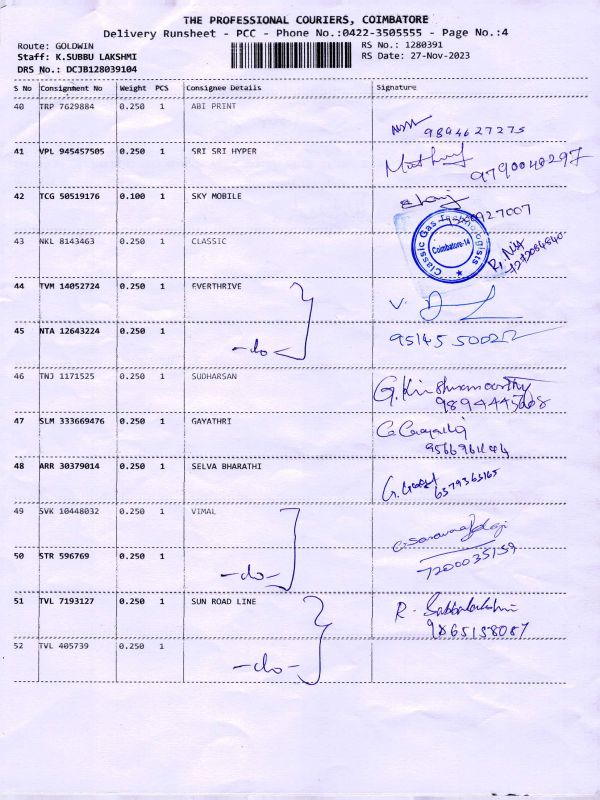 THE PROFESSIONAL COURIERS, COIMBATORE
Delivery Runsheet - PCC - Phone No.:0422-3505555 - Page No.:4
Route: GOLDWIN RS No.: 1280391
Staff: K.SUBBU LAKSHMI RS Date: 27-Nov-2023
DRS No.: DCJB128039104
S No Consignment No Weight PCS Consignee Details Signature
40 TRP 7629884 0.250 1 ABI PRINT
9894627275
41 VPL 945457505 0.250 1 SRI SRI HYPER
9790040297
42 TCG 50519176 0.100 1 SKY MOBILE
Classic Gas Technologists
Coimbatore-14
43 NKL 8143463 0.250 1 CLASSIC
44 TVM 14052724 0.250 1 EVERTHRIVE
45 NTA 12643224 0.250 1
-do-
46 TNJ 1171525 0.250 1 SUDHARSAN
G. Krishnamoorthy
47 SLM 333669476 0.250 1 GAYATHRI
G Gayathri
48 ARR 30379014 0.250 1 SELVA BHARATHI
6379363165
49 SVK 10448032 0.250 1 VIMAL
50 STR 596769 0.250 1
-do-
7200035159
51 TVL 7193127 0.250 1 SUN ROAD LINE
R. Subbulakshmi
9865158087
52 TVL 405739 0.250 1
-do-